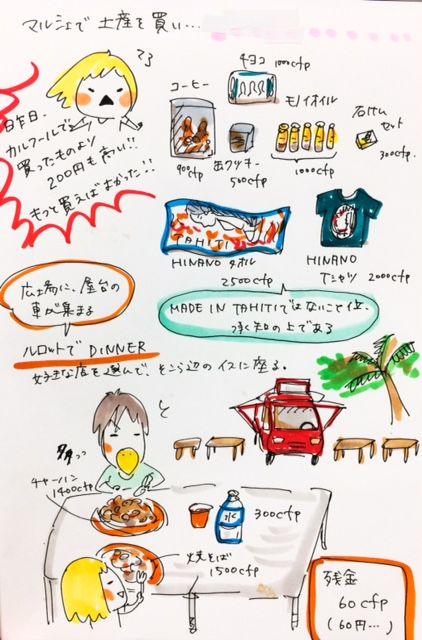 マルシェで土産を買い...
昨昨日、
カルフールで
買ったものより
200円も高い!!
もっと買えばよかった!!
チョコ 1000cfp
コーヒー
900cfp
缶クッキー
500cfp
モノイオイル
1000cfp
石けん
セット
300cfp
TAHITI
HINANO タオル
2500cfp
HINANO
Tシャツ 2000cfp
MADE IN TAHITIではないこと位、
承知の上である
広場に、屋台の
車が集まる
ルロットで DINNER
好きな店を選んで、そこら辺のイスに座る。
チャーハン
1400cfp
水
300cfp
焼そば
1500cfp
残金
60cfp
(60円...)